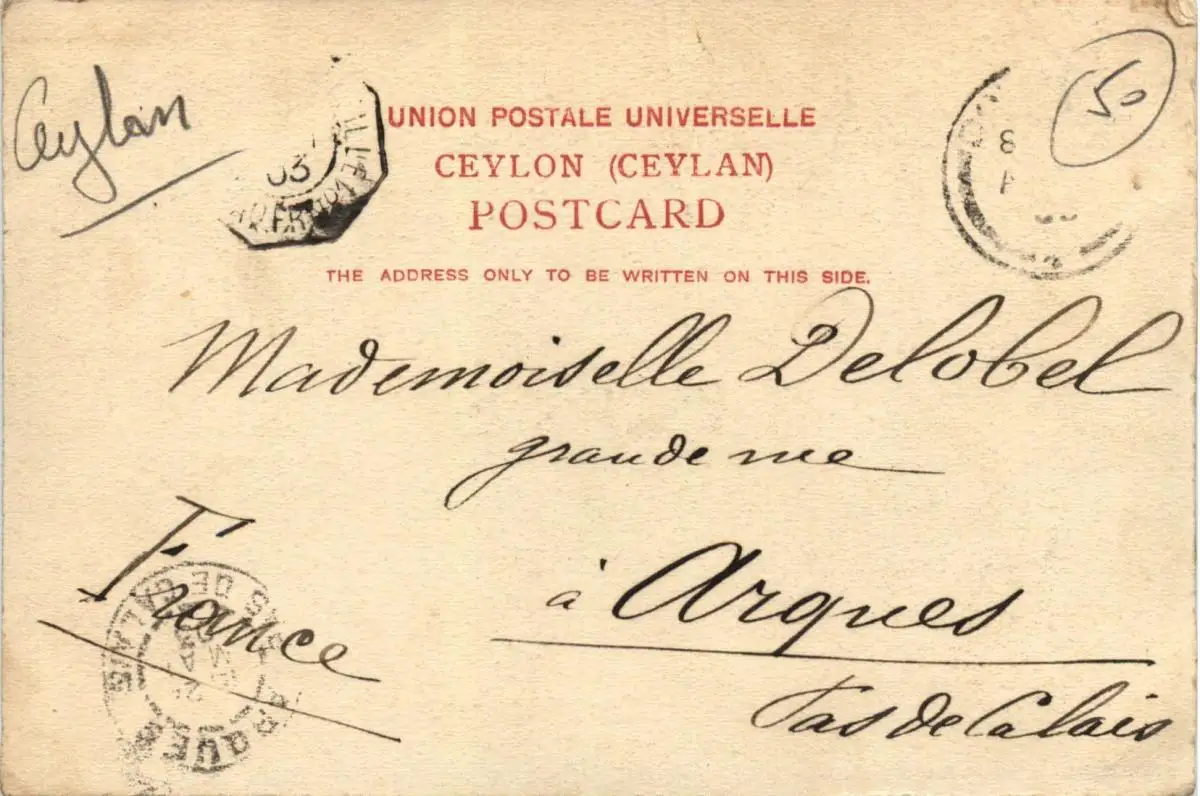 Ceylan
50
03
UNION POSTALE UNIVERSELLE
CEYLON (CEYLAN)
POSTCARD
THE ADDRESS ONLY TO BE WRITTEN ON THIS SIDE.
Mademoiselle Delobel
grande rue
à Arques
Pas de Calais
France
ARQUES
PAS DE CALAIS